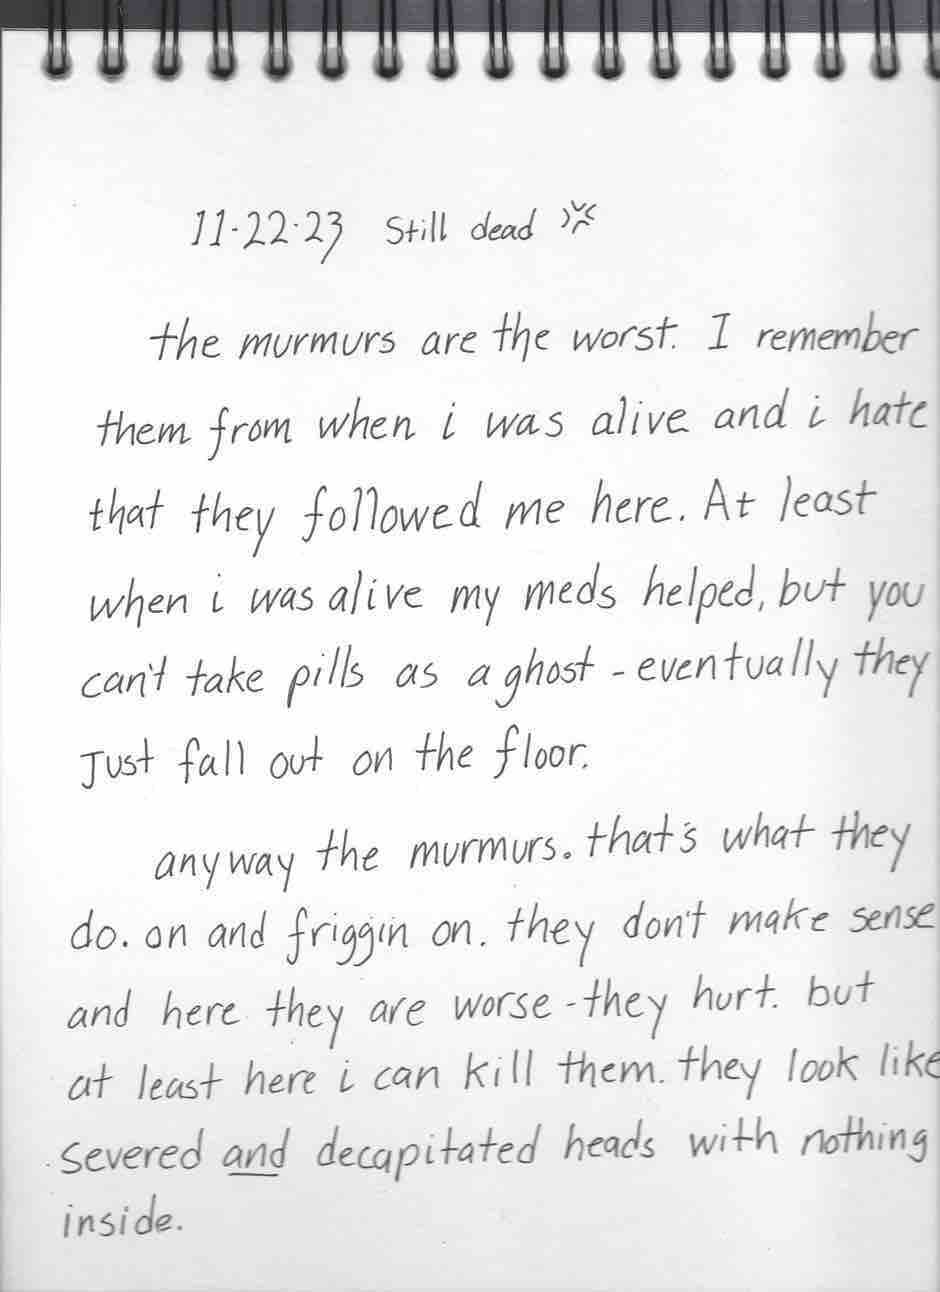 11·22·23 Still dead
the murmurs are the worst. I remember
them from when i was alive and i hate
that they followed me here. At least
when i was alive my meds helped, but you
can't take pills as a ghost - eventually they
Just fall out on the floor.
anyway the murmurs. that's what they
do. on and friggin on. they don't make sense
and here they are worse - they hurt. but
at least here i can kill them. they look like
severed and decapitated heads with nothing
inside.